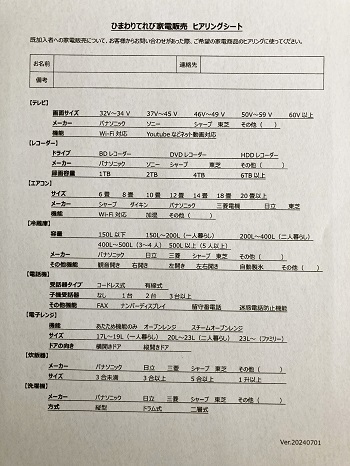 ひまわりてれび家電販売 ヒアリングシート
既加入者への家電販売について、お客様からお問い合わせがあった際、ご希望の家電商品のヒアリングに使ってください。
お名前 連絡先
備考
【テレビ】
画面サイズ 32V～34 V 37V～45 V 46V～49 V 50V～59 V 60V以上
メーカー パナソニック ソニー シャープ 東芝 その他（ ）
機能 Wi-Fi 対応 Youtubeなどネット動画対応
【レコーダー】
ドライブ BDレコーダー DVDレコーダー HDDレコーダー
メーカー パナソニック ソニー シャープ 東芝 その他（ ）
録画容量 1TB 2TB 4TB 6TB以上
【エアコン】
サイズ 6 畳 8 畳 10 畳 12 畳 14 畳 18 畳 20 畳以上
メーカー シャープ ダイキン パナソニック 三菱電機 日立 東芝
機能 Wi-Fi 対応 加湿 その他（ ）
【冷蔵庫】
容量 150L 以下 150L～200L（一人暮らし） 200L～400L（二人暮らし）
400L～500L（3～4 人） 500L 以上（5 人以上）
メーカー パナソニック 日立 三菱 シャープ 東芝 その他（ ）
その他機能 観音開き 右開き 左開き 左右開き 自動製氷 その他（ ）
【電話機】
受話器タイプ コードレス式 有線式
子機受話器 なし 1 台 2 台 3 台以上
その他機能 FAX ナンバーディスプレイ 留守番電話 迷惑電話防止機能
【電子レンジ】
機能 あたため機能のみ オーブンレンジ スチームオーブンレンジ
サイズ 17L～19L（一人暮らし） 20L～23L（二人暮らし） 23L～（ファミリー）
ドアの向き 横開きドア 縦開きドア
【炊飯器】
メーカー パナソニック 日立 三菱 シャープ 東芝 その他（ ）
サイズ 3 合未満 3 合以上 5 合以上 1 升以上
【洗濯機】
メーカー パナソニック 日立 三菱 シャープ 東芝 その他（ ）
方式 縦型 ドラム式 二層式
Ver.20240701